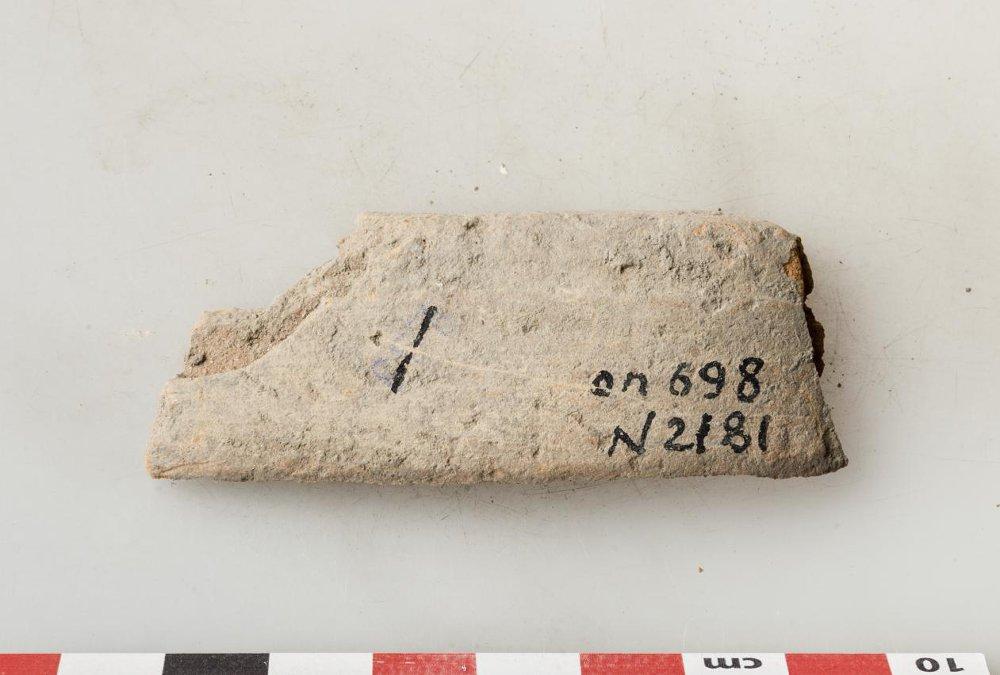 /
on 698
N 2181
cm 10